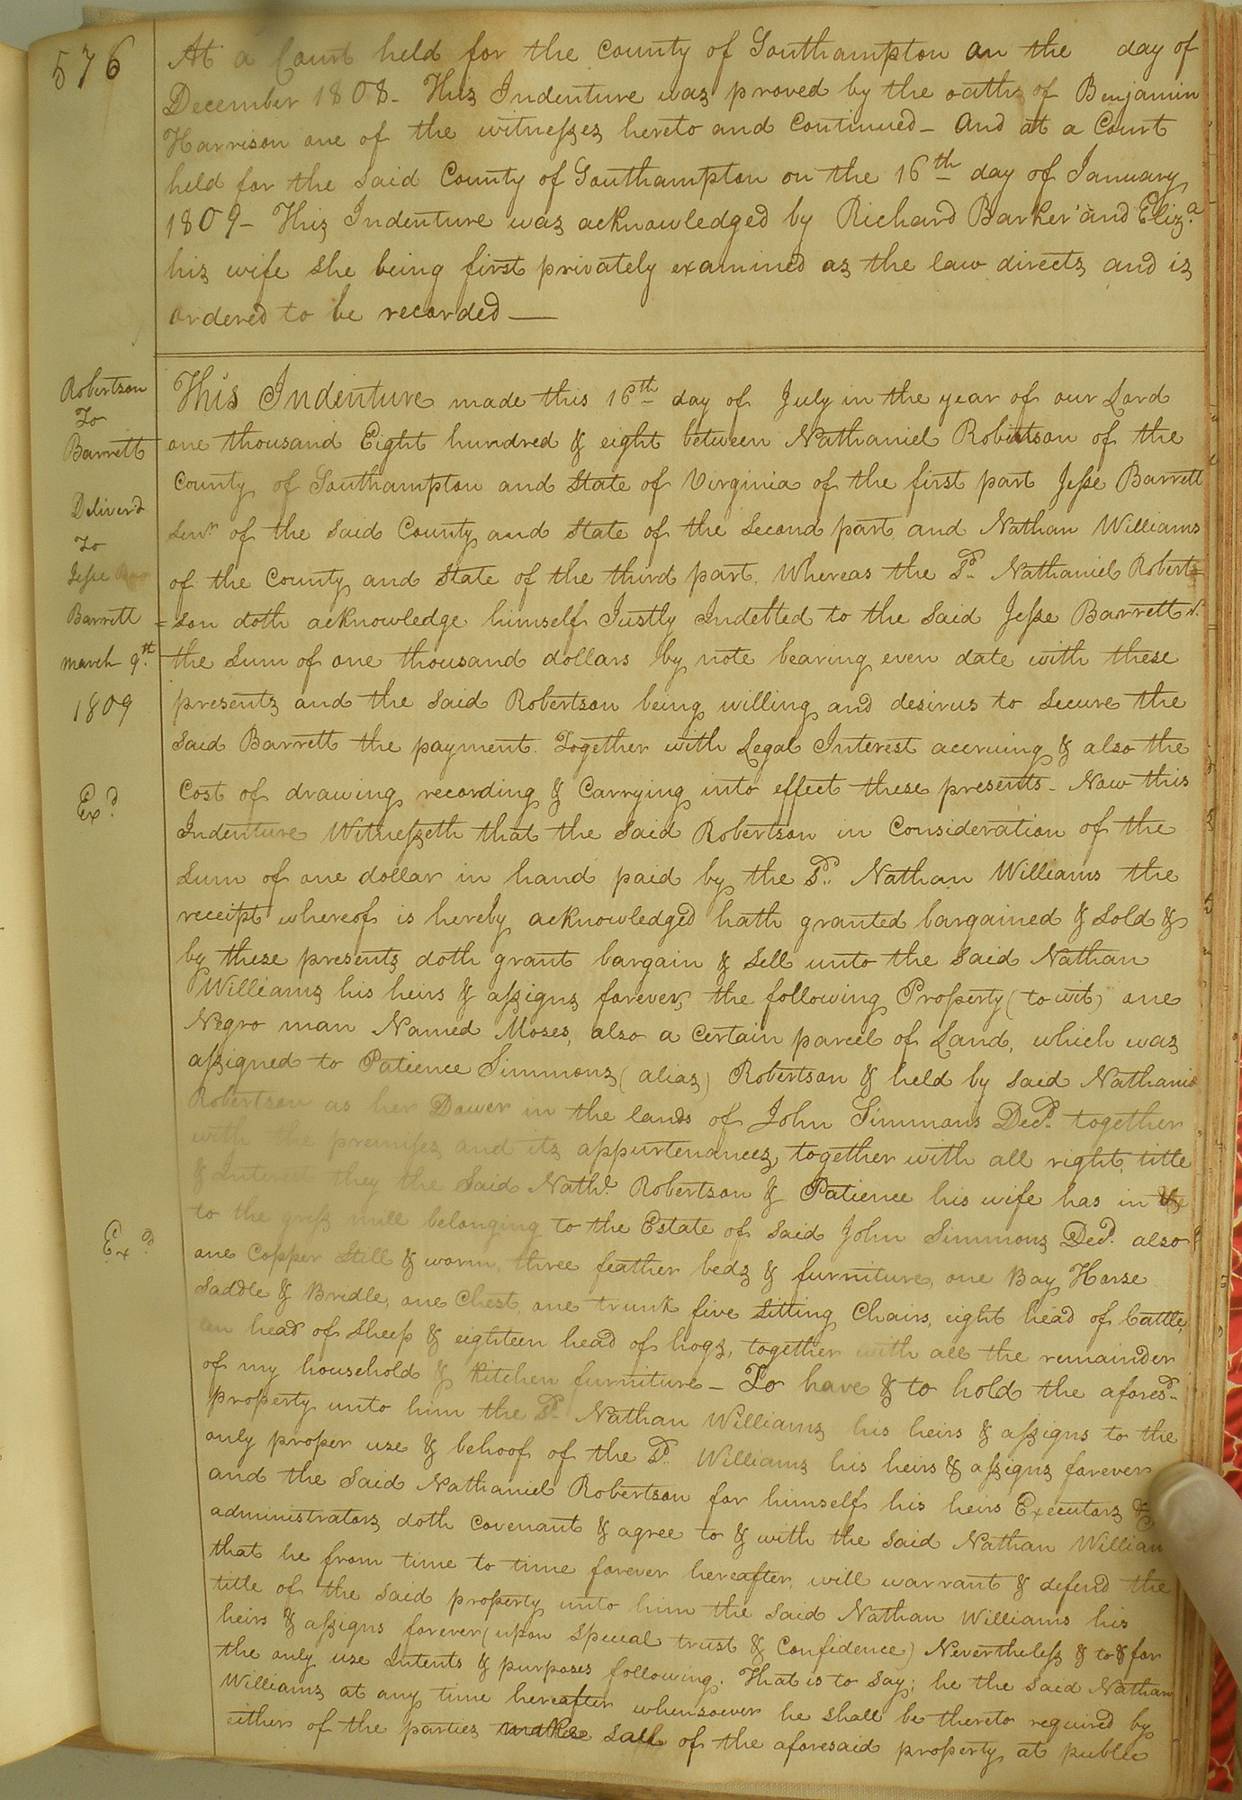 576
At a Court held for the County of Southampton on the day of
December 1808 - This Indenture was proved by the oaths of Benjamin
Harrison one of the witnesses hereto and Continued - And at a Court
held for the said County of Southampton on the 16th day of January
1809 - This Indenture was acknowledged by Richard Barker and Eliza
his wife she being first privately examined as the law directs and is
ordered to be recorded —
Robertson
To
Barrett
Deliver'd
To
Jesse
Barrett
march 9th
1809
Exd
Exd
This Indenture made this 16th day of July in the year of our Lord
one thousand Eight hundred & eight between Nathaniel Robertson of the
County of Southampton and State of Virginia of the first part Jesse Barrett
Senr of the said County and State of the Second part and Nathan Williams
of the County and State of the third part. Whereas the Sd Nathaniel Robert
=son doth acknowledge himself Justly Indebted to the Said Jesse Barrett Sr
the Sum of one thousand dollars by note bearing even date with these
presents and the said Robertson being willing and desirus to Secure the
said Barrett the payment Together with Legal Interest accruing & also the
Cost of drawing recording & Carrying into effect these presents - Now this
Indenture Witnesseth that the said Robertson in Consideration of the
Sum of one dollar in hand paid by the Sd Nathan Williams the
receipt whereof is hereby acknowledged hath granted bargained & Sold &
by these presents doth grant bargain & Sell unto the Said Nathan
Williams his heirs & assigns forever, the following Property (to wit) one
Negro man Named Moses, also a Certain parcel of Land, which was
assigned to Patience Simmons (alias) Robertson & held by said Nathaniel
Robertson as her Dower in the lands of John Simmons Decd together
with the premises and its appurtenances, together with all right title
& Interest they the Said Nathl Robertson & Patience his wife has in &
to the grist mill belonging to the Estate of said John Simmons Decd. also
one Copper Still & worm, three feather beds & furniture, one Bay Horse
Saddle & Bridle, one Chest, one trunk five Sitting Chairs, eight head of Cattle,
ten head of Sheep & eighteen head of hogs, together with all the remainder
of my household & Kitchen furniture - To have & to hold the aforesd
property unto him the Sd Nathan Williams his heirs & assigns to the
only proper use & behoof of the Sd Williams his heirs & assigns forever
and the Said Nathaniel Robertson for himself his heirs Executors &
administrators doth Covenant & agree to & with the said Nathan William
that he from time to time forever hereafter, will warrant & defend the
title of the said property unto him the said Nathan Williams his
heirs & assigns forever (upon special trust & Confidence) Nevertheless & to & for
the only use Intents & purposes following. That is to say; he the said Nathan
Williams at any time hereafter whensoever he shall be thereto required by
either of the parties make Sale of the aforesaid property at public